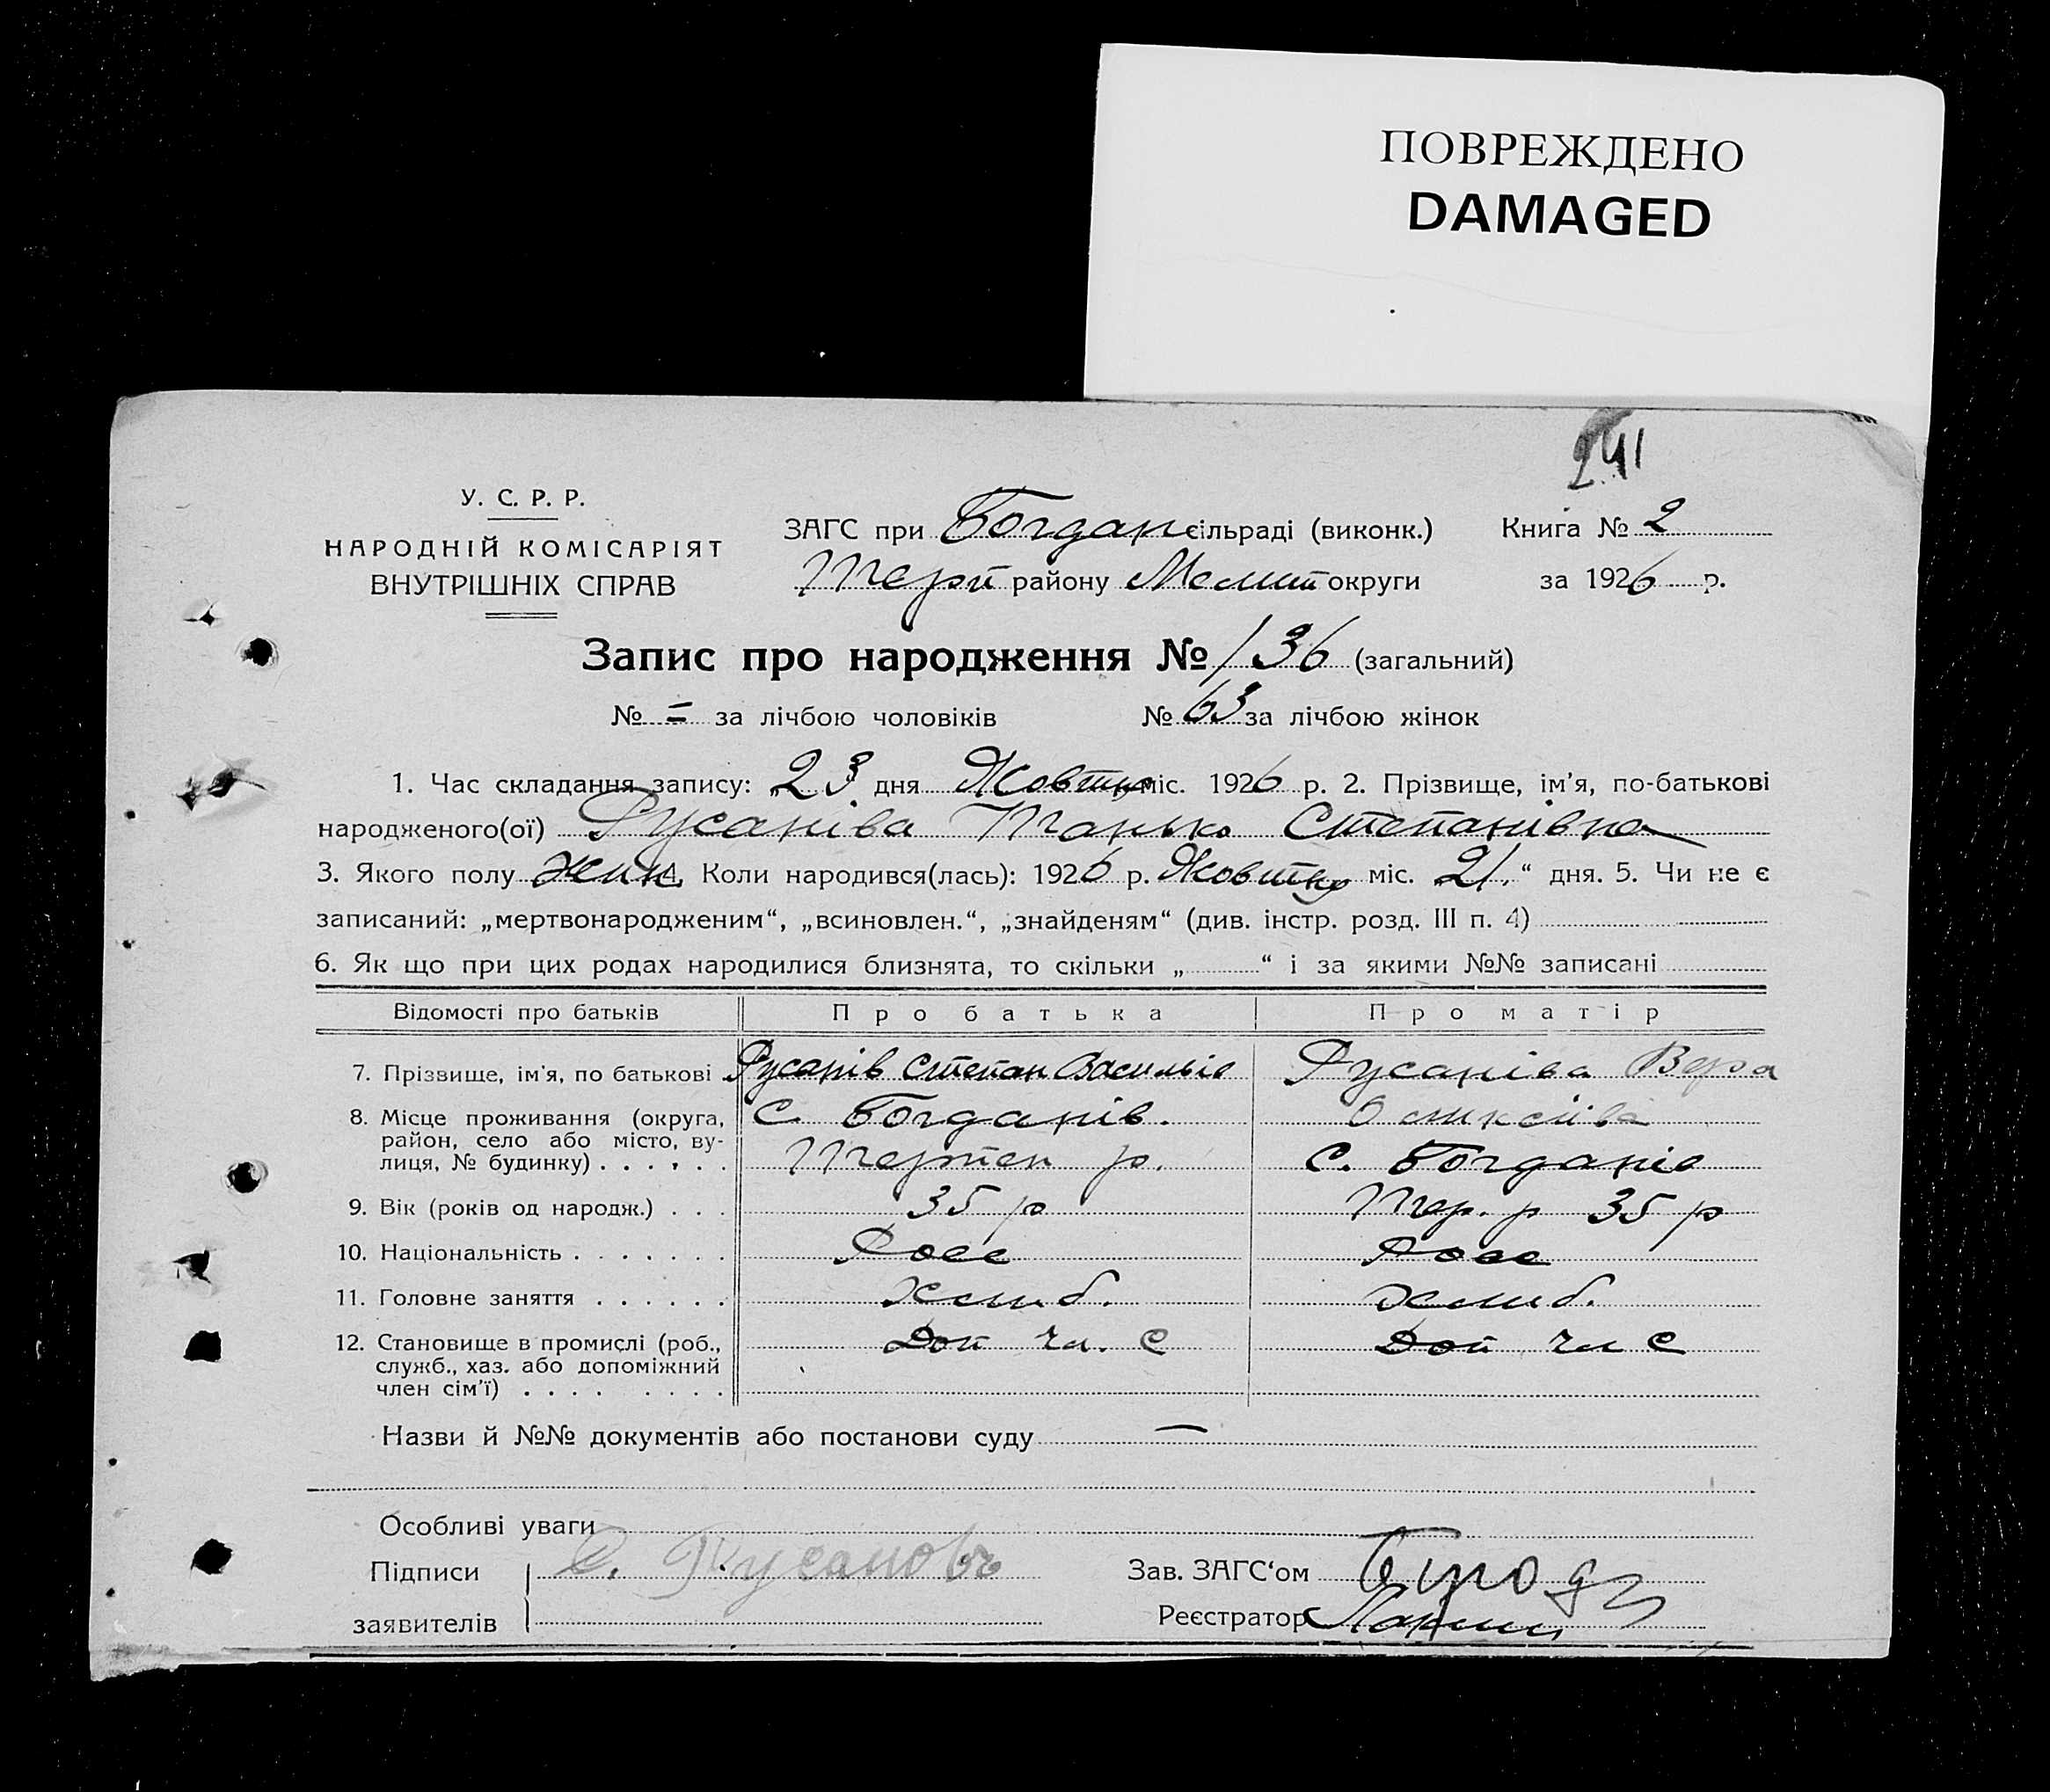 ПОВРЕЖДЕНО
DAMAGED
241
У. С. Р. Р.
НАРОДНІЙ КОМІСАРІЯТ
ВНУТРІШНІХ СПРАВ
ЗАГС при Богдан сільраді (виконк.) Книга № 2
Терп району Мелит округи за 1926 р.
Запис про народження № 136 (загальний)
№ = за лічбою чоловіків № 63 за лічбою жінок
1. Час складання запису: „23 дня Жовтня міс. 1926 р. 2. Прізвище, ім'я, по-батькові
народженого(ої) Русаніва Танько Степанівна
3. Якого полу жин 4. Коли народився(лась): 1926 р. Жовтня міс. „21.“ дня. 5. Чи не є
записаний: „мертвонародженим“, „всиновлен.“, „знайденям“ (див. інстр. розд. III п. 4)
6. Як що при цих родах народилися близнята, то скільки „ “ і за якими №№ записані
Відомості про батьків Про батька Про матір
7. Прізвище, ім'я, по батькові Русанів Степан Васильїв Русаніва Вера
8. Місце проживання (округа, С. Богданів.
район, село або місто, ву- Терпен р. С. Богданів
лиця, № будинку)
9. Вік (років од народж.) 35 р Тер. р 35 р
10. Національність Росс Росс
11. Головне заняття Хлиб. Хлиб.
12. Становище в промислі (роб., Доп чл. С Доп чл С
служб., хаз. або допоміжний
член сім'ї)
Назви й №№ документів або постанови суду —
Особливі уваги
Підписи С. Русановъ Зав. ЗАГС'ом
заявителів Реєстратор